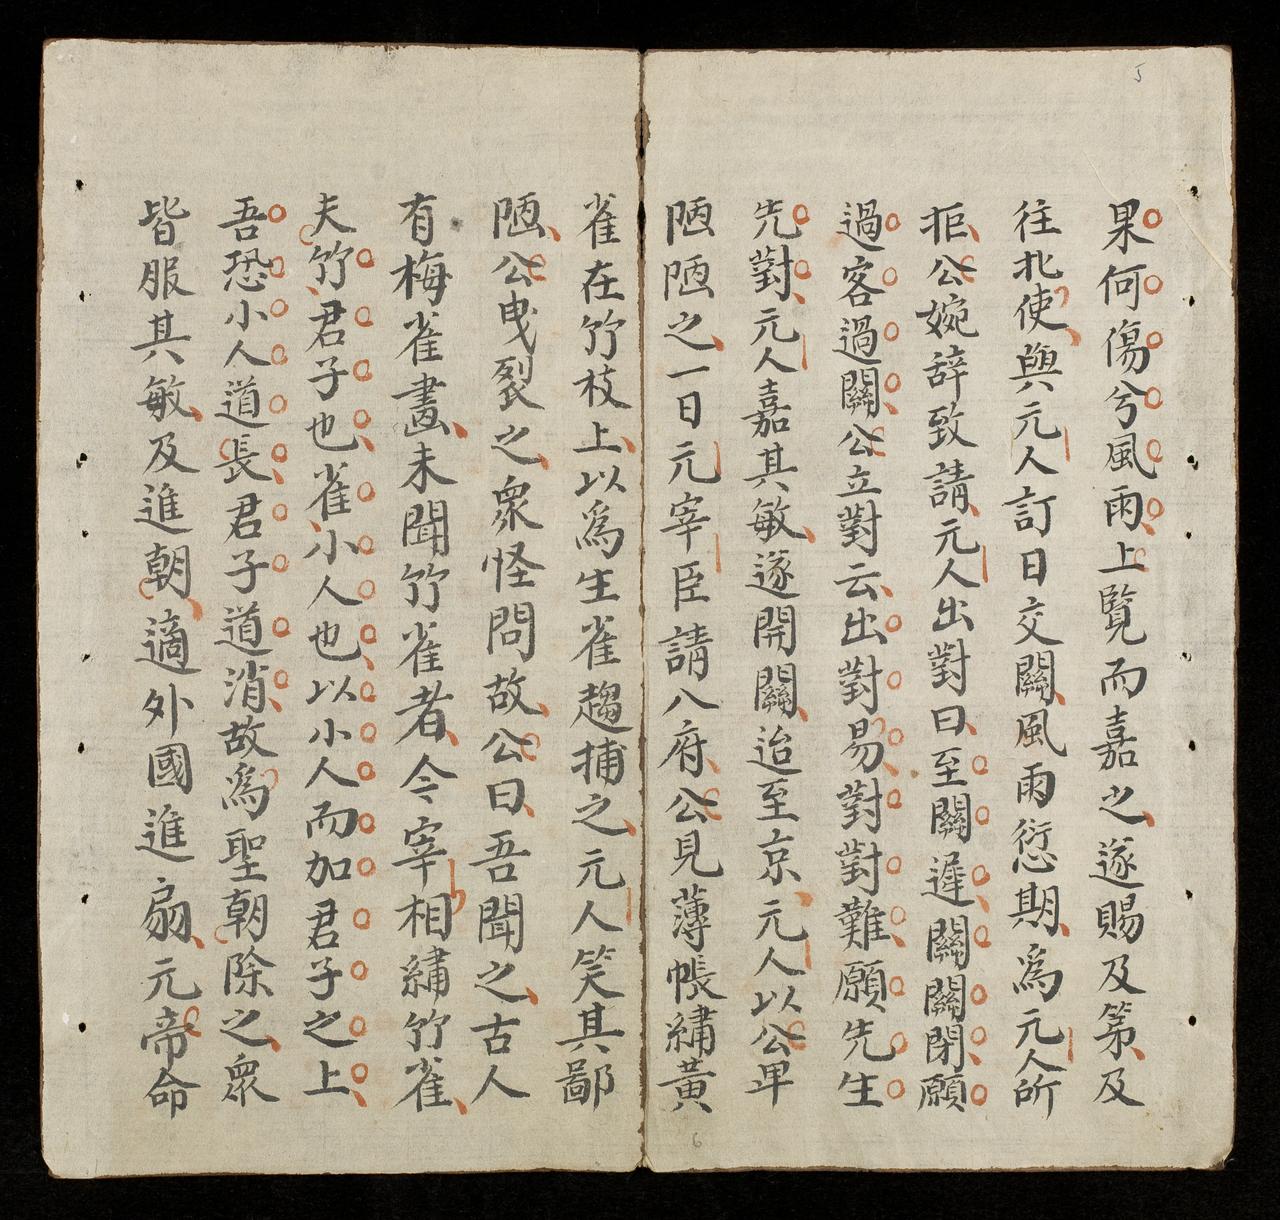 5
果何傷兮風雨上覧而嘉之遂賜及第及
往北使與元人訂日交關風雨愆期爲元人所
拒公婉辞致請元人出對曰至關遲關關閉願
過客過關公立對云出對易對對難願先生
先對元人嘉其敏遂開關迨至京元人以公卑
陋陋之一日元宰臣請八府公見薄帳繡黃
雀在竹枝上以爲生雀趨捕之元人笑其鄙
陋公曳裂之衆怪問故公曰吾聞之古人
有梅雀畫未聞竹雀者今宰相繡竹雀
夫竹君子也雀小人也以小人而加君子之上
吾恐小人道長君子道消故爲聖朝除之衆
皆服其敏及進朝適外國進扇元帝命
6